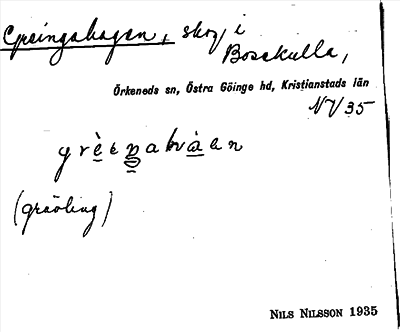 Greingahagen, skog i
Bosekulla,
Örkeneds sn, Östra Göinge hd, Kristianstads län
NV 35
(gräöling)
NILS NILSSON 1935